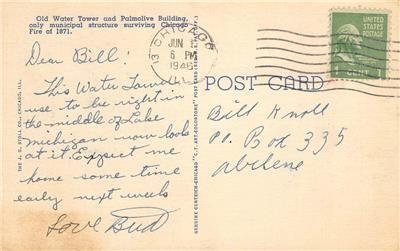 Old Water Tower and Palmolive Building,
only municipal structure surviving Chicago
Fire of 1871.
Dear Bill!
This Water Tower
use to be right in
the middle of Lake
michigan now look
at it. Expect me
home some time
early next week
Love Bud
THE J. O. STOLL CO., CHICAGO, ILL.
GENUINE CURTEICH-CHICAGO "C.T. ART-COLORTONE" POST CARD
CHICAGO
JUN
6 PM
194
ILL
UNITED STATES
POSTAGE
1 CENT 1
POST CARD
Bill Knoll
P.O. Box 335
Abilene